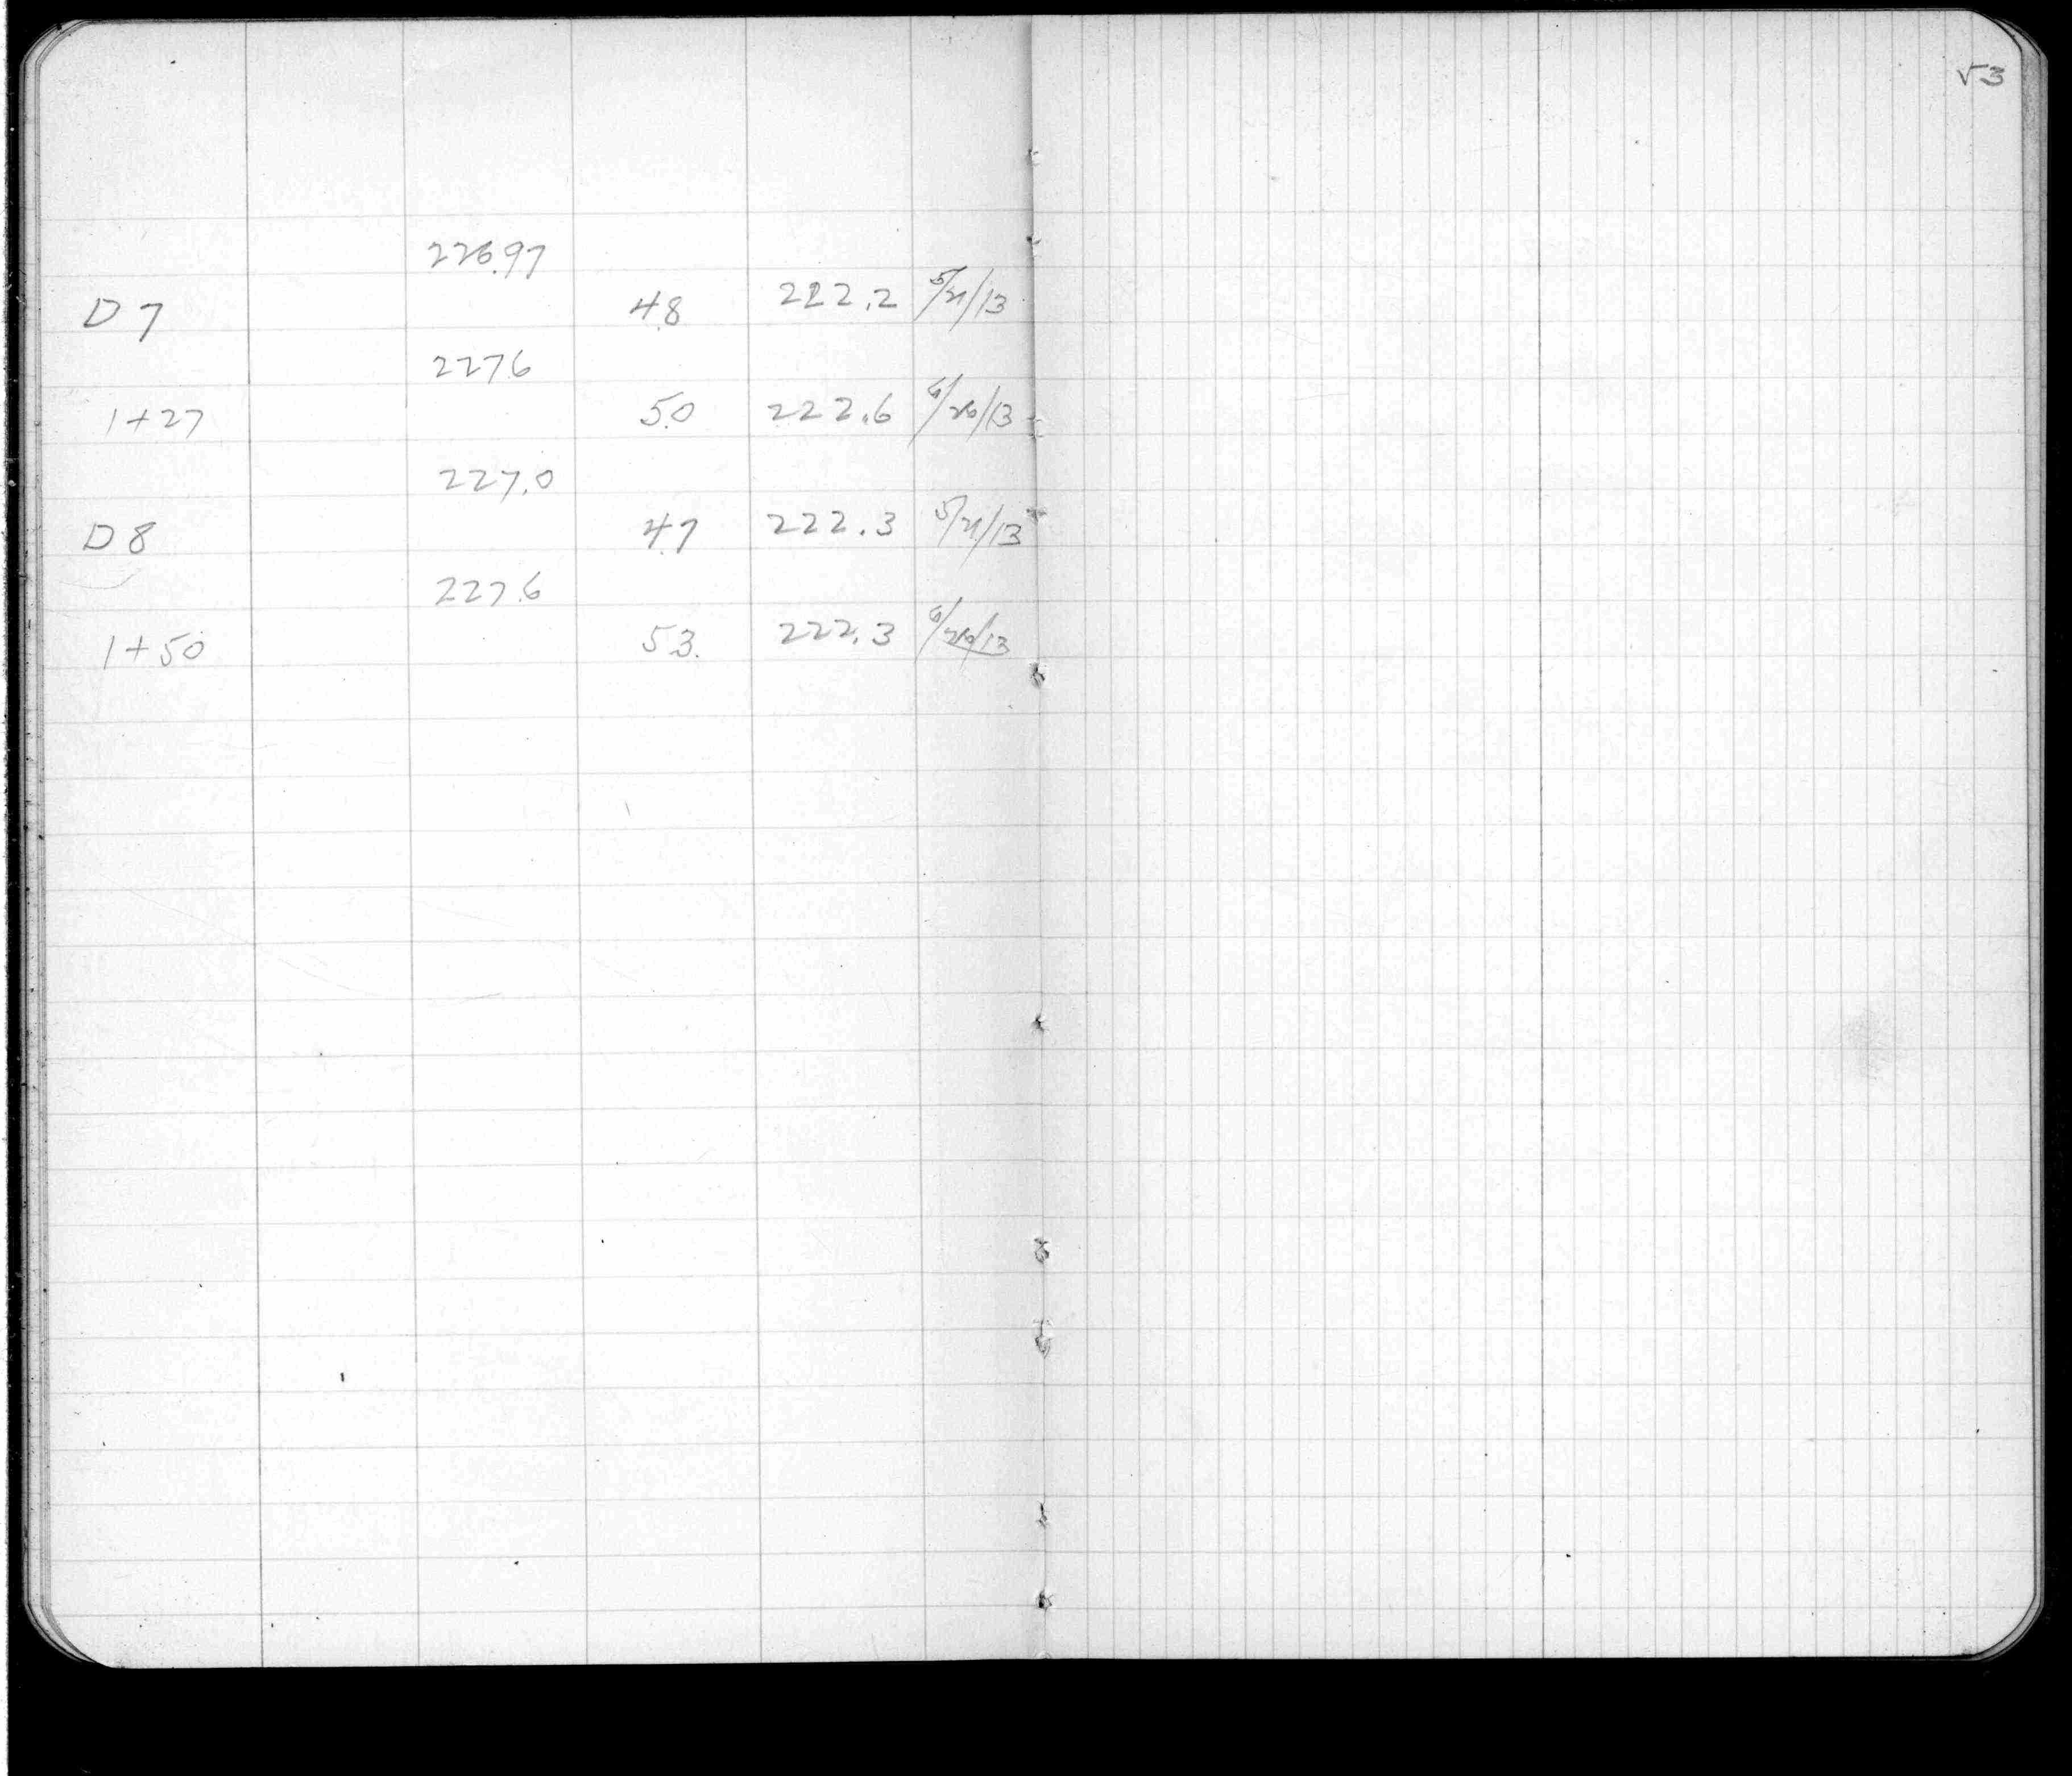 53
226.97
D 7 4.8 222.2 5/21/13
227.6
1+27 5.0 222.6 6/26/13
227.0
D 8 4.7 222.3 5/21/13
227.6
1+50 5.3 222.3 6/26/13